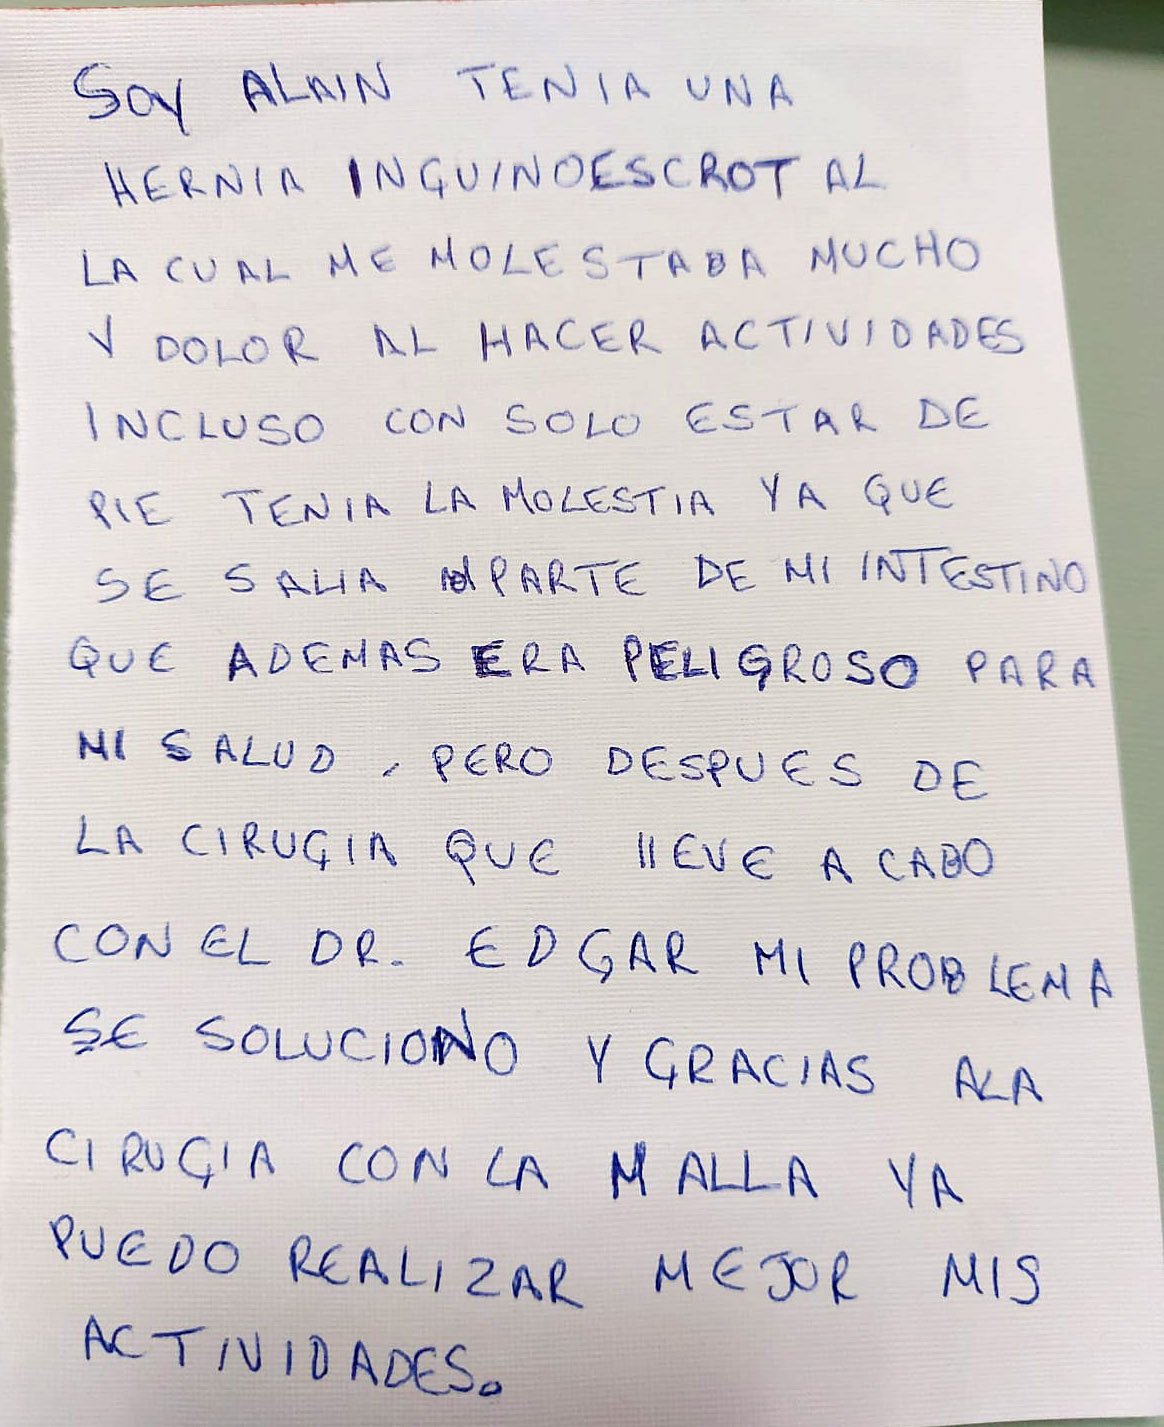 SOY ALAIN TENIA UNA
HERNIA INGUINOESCROTAL
LA CUAL ME MOLESTABA MUCHO
Y DOLOR AL HACER ACTIVIDADES
INCLUSO CON SOLO ESTAR DE
PIE TENIA LA MOLESTIA YA QUE
SE SALIA PARTE DE MI INTESTINO
QUE ADEMAS ERA PELIGROSO PARA
MI SALUD, PERO DESPUES DE
LA CIRUGIA QUE llEVE A CABO
CON EL DR. EDGAR MI PROBLEMA
SE SOLUCIONO Y GRACIAS A LA
CIRUGIA CON LA MALLA YA
PUEDO REALIZAR MEJOR MIS
ACTIVIDADES.